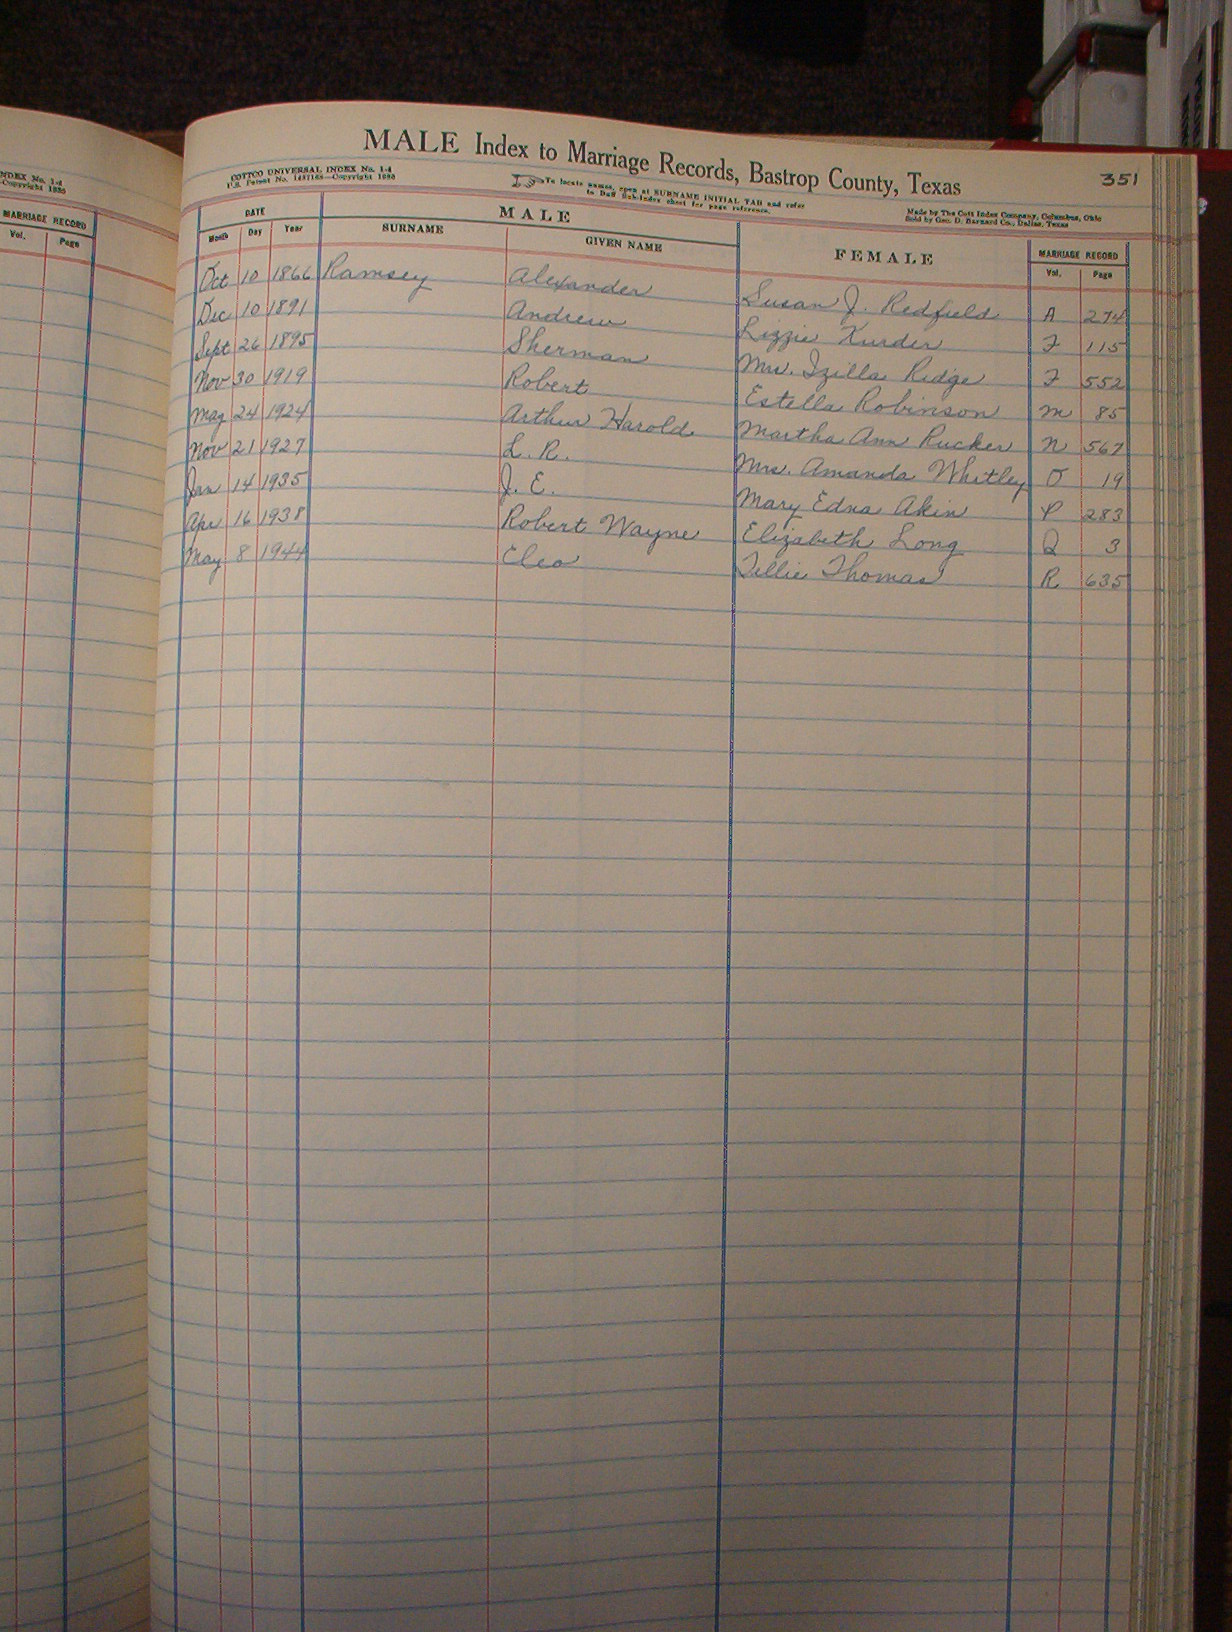 NDEX No. 1-4
MARRIAGE RECORD
Vol. Page
MALE Index to Marriage Records, Bastrop County, Texas
351
COTTCO UNIVERSAL INDEX No. 1-4
To locate names, open at SURNAME INITIAL TAB and refer
to Buff Sub-Index sheet for page reference.
Made by The Cott Index Company, Columbus, Ohio
Sold by Geo. D. Barnard Co., Dallas, Texas
DATE MALE FEMALE MARRIAGE RECORD
Month Day Year SURNAME GIVEN NAME Vol. Page
Oct 10 1866 Ramsey Alexander Susan J. Redfield A 274
Dec 10 1891 Andrew Lizzie Kurder F 115
Sept 26 1895 Sherman Mrs. Izilla Ridge F 552
Nov 30 1919 Robert Estella Robinson M 85
May 24 1924 Arthur Harold Martha Ann Rucker N 567
Nov 21 1927 L. R. Mrs. Amanda Whitley O 19
Jan 14 1935 J. E. Mary Edna Akin P 283
Apr 16 1938 Robert Wayne Elizabeth Long Q 3
May 8 1944 Cleo Tillie Thomas R 635